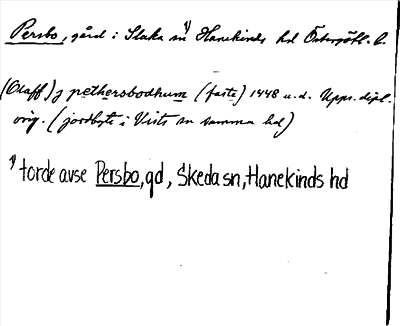 Persbo, gård i Slaka sn ¹⁾ Hanekinds hd Östergötl. l.
(Olaff) j pethersbodhum (faste) 1448 u.d. Upps. dipl.
orig. (jordbyte i Vists sn samma hd)
¹⁾ torde avse Persbo, gd, Skeda sn, Hanekinds hd